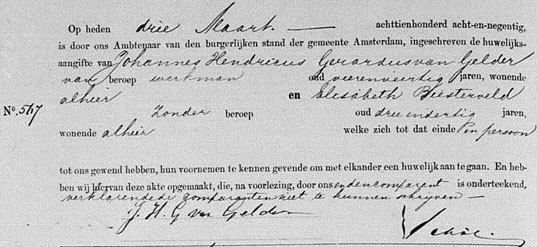 Op heden drie Maart. achttienhonderd acht-en-negentig,
is door ons Ambtenaar van den burgerlijken stand der gemeente Amsterdam, ingeschreven de huwelijks-
aangifte van Johannes Hendricus Gerardus van Gelder
van beroep werkman oud vierenveertig jaren, wonende
alhier en Elisabeth Biesterveld
No. 517 Zonder beroep oud drie en dertig jaren,
wonende alhier welke zich tot dat einde in persoon
tot ons gewend hebben, hun voornemen te kennen gevende om met elkander een huwelijk aan te gaan. En heb-
ben wij hiervan deze akte opgemaakt, die, na voorlezing, door ons en den comparant is onderteekend,
verklarende de comparante niet te kunnen schrijven
J. H. G van Gelder